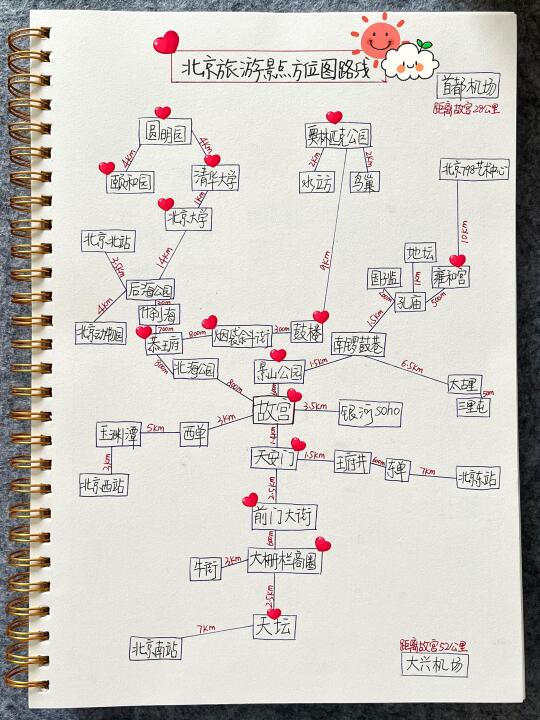 北京旅游景点方位图路线
首都机场
距离故宫28公里
圆明园
4km
4km
颐和园
清华大学
1km
北京大学
14km
奥林匹克公园
2km
2km
水立方
鸟巢
9km
北京798艺术中心
10km
北京北站
3.5km
后海公园
4km
北京动物园
什刹海
700m
恭王府
800m
烟袋斜街
300m
鼓楼
300m
北海公园
800m
地坛
国子监
1km
雍和宫
200m
孔庙
500m
1.5km
南锣鼓巷
景山公园
1.5km
6.5km
太古里
50m
三里屯
故宫
3.5km
银河soho
玉渊潭
5km
西单
3km
2km
北京西站
1.4km
天安门
1.5km
王府井
600m
东单
7km
北京东站
2.5km
前门大街
牛街
3km
大栅栏商圈
2.5km
天坛
7km
北京南站
距离故宫52公里
大兴机场